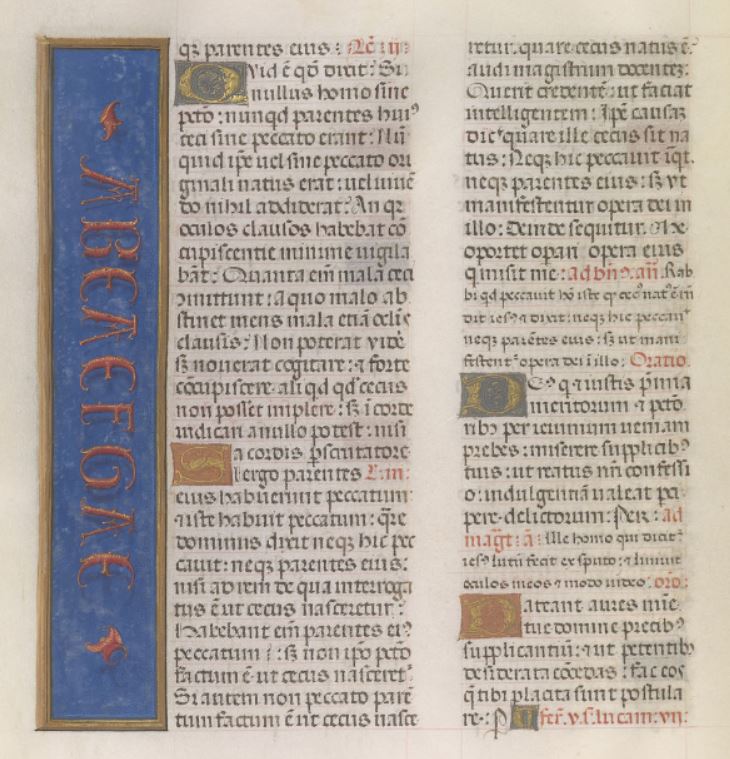 ABEAEFGAE
q; parentes eius: Lc̄ ij
Quid ē qd̄ dixit: Si
nullus homo sine
pctō: nunqd parentes hui⁹
ceci sine peccato erant: Nū
quid ip̄e uel sine peccato ori
ginali natus erat: uel
do nihil addiderat: An qr
oculos clausos habebat cō
cupiscentie minime uigila
bāt: Quanta em̄ mala ceci
ↄmittunt: a quo malo ab
stinet mens mala etiā
clausis: Non poterat vidē
sꝫ nouerat cogitare: ⁊ forte
cōcupiscere aliqd qd̓ cecus
non posset implere: sꝫ ī corde
iudicari a nullo potest: nisi
a cordis pscrutatore
ergo parentes
eius habuerunt peccatum:
⁊ iste habuit peccatum: q̄re
dominus dixit neq; hic pec
cauit: neq; parentes eius:
nisi ad rem de qua interroga
tus ē ut cecus nasceretur:
Habebant em̄ parentes ei⁹
peccatum: sꝫ non ip̄o pctō
factum ē ut cecus nasceret᷑
Si autem non peccato parē
tum factum ē ut cecus nasce
retur. quare cecus natus ē:
audi magistrum docentez:
Querit credentē: ut faciat
intelligentem: Ip̄e causaz
dic quare ille cecus sit na
tus: Neq; hic peccauit īqt.
neq; parentes eius: sꝫ vt
manifestentur opera dei in
illo: Deinde sequitur. Me
oportet opari opera eius
q̄ misit me: ad bn̄ꝰ. añ. Rab
bi qd peccauit hō iste q cec⁹ nat⁹ ē
dit ies⁹ ⁊ dixit: neq; hic peccauit
neq; parētes eius: sꝫ ut mani
festent᷑ opera dei ī illo: Oratio.
De⁹ q ⁊ iustis p̄mia
meritorum ⁊ pctō
rib⁹ per ieiunium ueniam
prebes: miserere supplicib⁹
tuis: ut reatus nr̄i confessi
o: indulgentiā ualeat pci
pere delictorum: Per: ad
magt: ā: Ille homo qui dicit᷑
ies⁹ lutū fecit ex sputo: ⁊ liniuit
oculos meos ⁊ modo uideo: orō:
Pateant aures mīe
tue domine precib⁹
supplicantiū: ⁊ ut petentib⁹
desiderata cōcedas: fac eos
q̄ tibi placita sunt postula
re: P fer̄. v. s. lucam: vii: